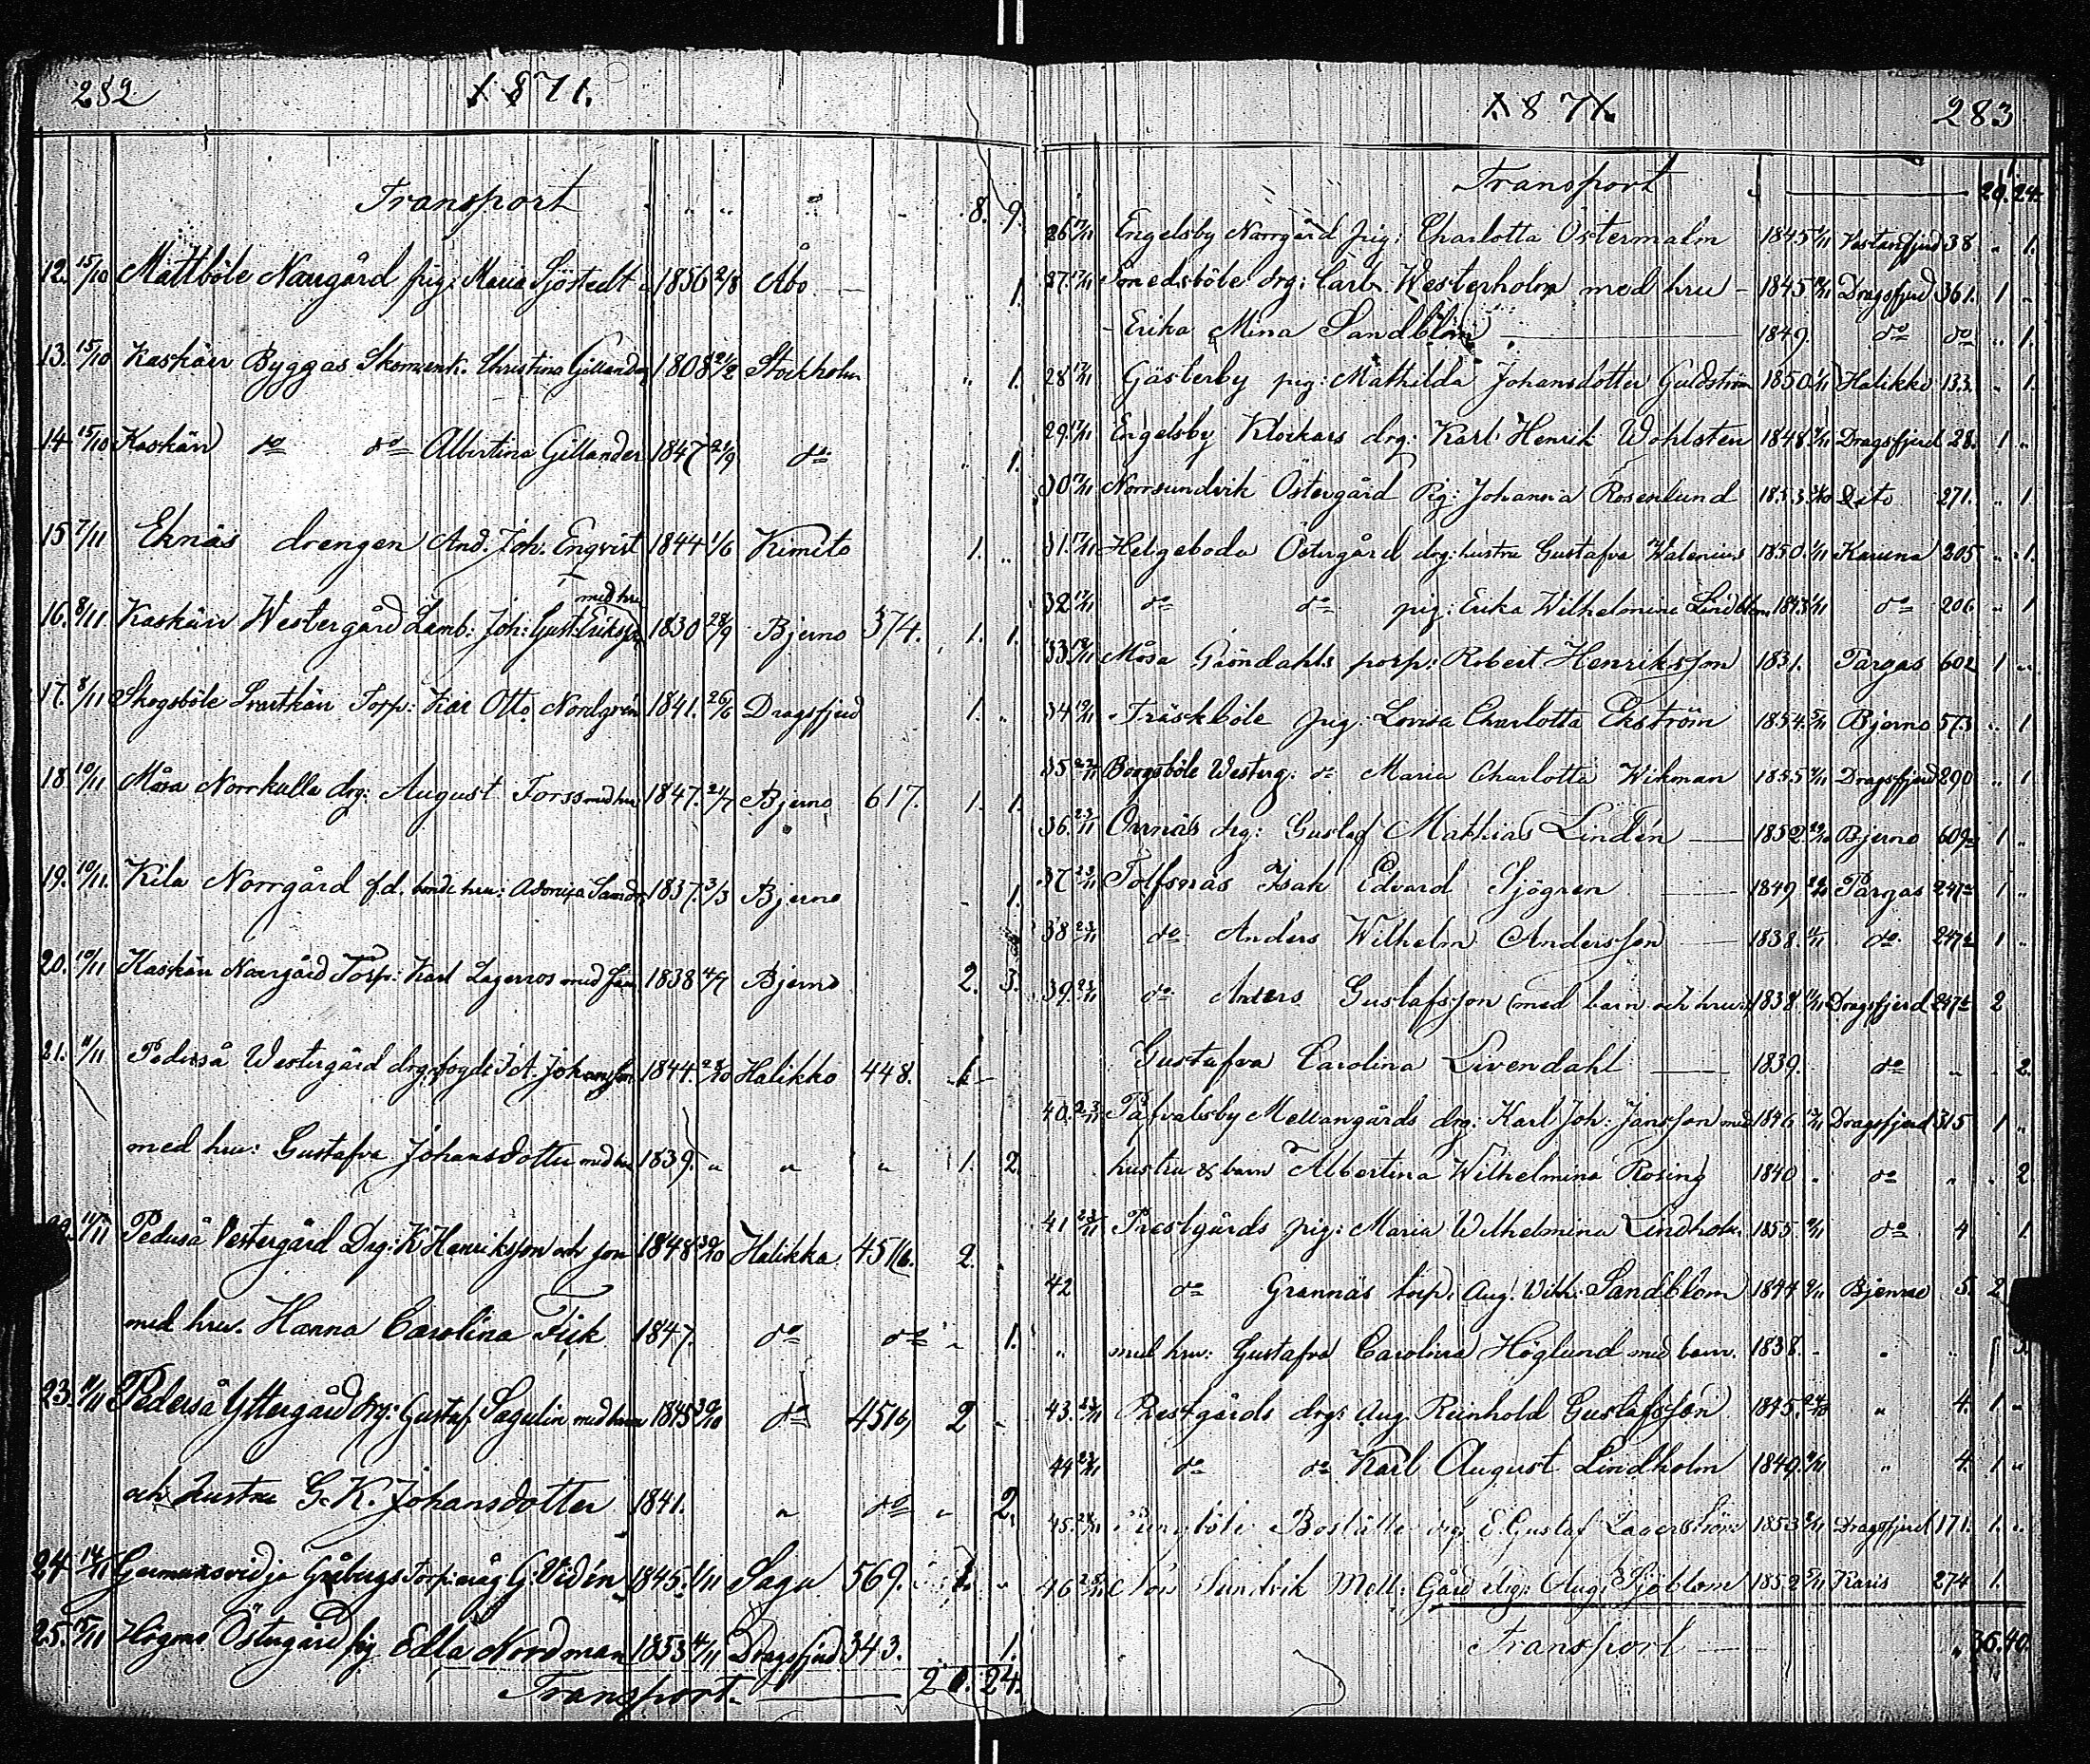 282 1871.
Transport " " " " " 8. 9.
12. 15/10 Mattböle Norrgård pig: Maria Sjöstedt 1856 2/8 Åbo " 1.
13. 15/10 Kaskäu Byggas Christina Gillander 1808 21/2 Stockholm " 1.
14 15/10 Kaskäu do do Albertina Gillander 1847 21/9 do " 1.
15 7/11 Eknäs drengen And. Joh. Enqvist 1844 1/6 Kimito 1. "
med hu
16. 8/11 Kaskäu Westergård Lamb: Joh: Gust: Eriksson 1830 28/9 Bjerno 374. 1. 1.
17. 8/11 Skogsböle Svartkäu Torp: Kar Otto Nordgrén 1841. 26/6 Dragsfjerd 1. "
18 10/11 Måsa Norrkulla drg: August Forss med hu 1847. 21/7 Bjerno 617. 1. 1.
19. 10/11. Kila Norrgård f.d. bonde hru: 1837. 3/3 Bjerno " 1.
20. 10/11 Kaskäu Norrgård Torp: Karl Lagerros med fam 1838 4/7 Bjerno 2. 3.
21. 11/11 Pederså Westergård drg: fogde J A. Johansson 1844. 28/10 Halikko 448.
med hru: Gustafva Johansdotter med 1839. " " " 1. 2.
11/11 Pederså Vestergård Drg: K Henriksson och son 1848 30/10 Halikka 451/6. 2.
med hru. Hanna Carolina Fisk 1847. do do " 1.
23. 11/11 Pederså Yttergård drg: Gustaf Sagulin med barn 1845 30/10 do 451/6 2 "
och Hustru G. K. Johansdotter 1841. " do " 2.
24 14/11 Germunsvidja Torp: måg G. Vidén 1845. 1/11 Sagu 569. 1. "
25. 15/11 Högmo Östergård pig Edla Nordman 1853 4/11 Dragsfjerd 343. 1.
Transport. 20. 24.
1871. 283
Transport 20. 24.
26 17/11 Engelsby Norrgård pig: Charlotta Östermalm 1845 Vestanfjerd 38 " 1.
27. 17/11 Smedsböle drg: Carl Westerholm med hru 1845 Dragsfjerd 361. 1 "
Erika Mina Sandblom 1849. do do " 1.
28 17/11 Gästerby pig: Mathilda Johansdotter Guldström 1850 1/11 Halikko 133. " 1.
29 17/11 Engelsby Klockars drg: Karl Henrik Wohlsten 1848. Dragsfjerd 28. 1 "
30 17/11 Norrsundvik Östergård Pig: Johanna Rosenlund 1853 Dito 271. " 1.
31. 17/11 Helgeboda Östergård drg: hustru Gustafva Walenius 1850. 1/11 Karuna 205 " 1.
32 17/11 do do pig: Erika Wilhelmina Lindblom 1843 1/11 do 206 " 1
33 Måsa Gröndahls porp: Robert Henriksson 1831. Pargas 602 1 "
34 Träskböle pig: Lovisa Charlotta Ekström 1854. Bjerno 573 " 1
35 Boggsböle Westerg: do Maria Charlotta Wikman 1855 Dragsfjerd 290 " 1
36. 23/11 Orrnäs drg: Gustaf Mathias Lindén 1852. Bjerno 609 1 "
37 23/11 Tolfsnäs Isak Edvard Sjögren 1849 Pargas 247 1 "
38 23/11 do Anders Wilhelm Andersson 1838. do 247 1 "
39. 23/11 do Anders Gustafsson med barn och hru: 1838. Dragsfjerd 247 2
Gustafva Carolina Livendahl 1839. do " 2.
40. 23/11 Påfvalsby Mellangårds drg: Karl Joh: Jansson med 1846 Dragsfjerd 315 1 "
hustru & barn Albertina Wilhelmina Rosing 1840 " do " " 2
41 23/11 Prestgårds pig: Maria Wilhelmina Lindholm 1855. do 4 1.
42 do Grännäs torp: Aug. Wilh: Sandblom 1844 Bjerno 5. 2
" med hru: Gustafva Carolina Höglund med barn. 1838. " " 3.
43. 23/11 Prestgårds drg: Aug. Reinhold Gustafsson 1845. " 4. 1 "
44 23/11 do do Karl August Lindholm 1849. " 4. 1 "
45. Boställe drg E. Gustaf Lagerström 1853 Dragsfjerd 171. 1. "
46 Nor Sundvik Mell: Gård drg: Aug. Sjöblom 1852 Karis 274 1.
Transport " 36. 40.